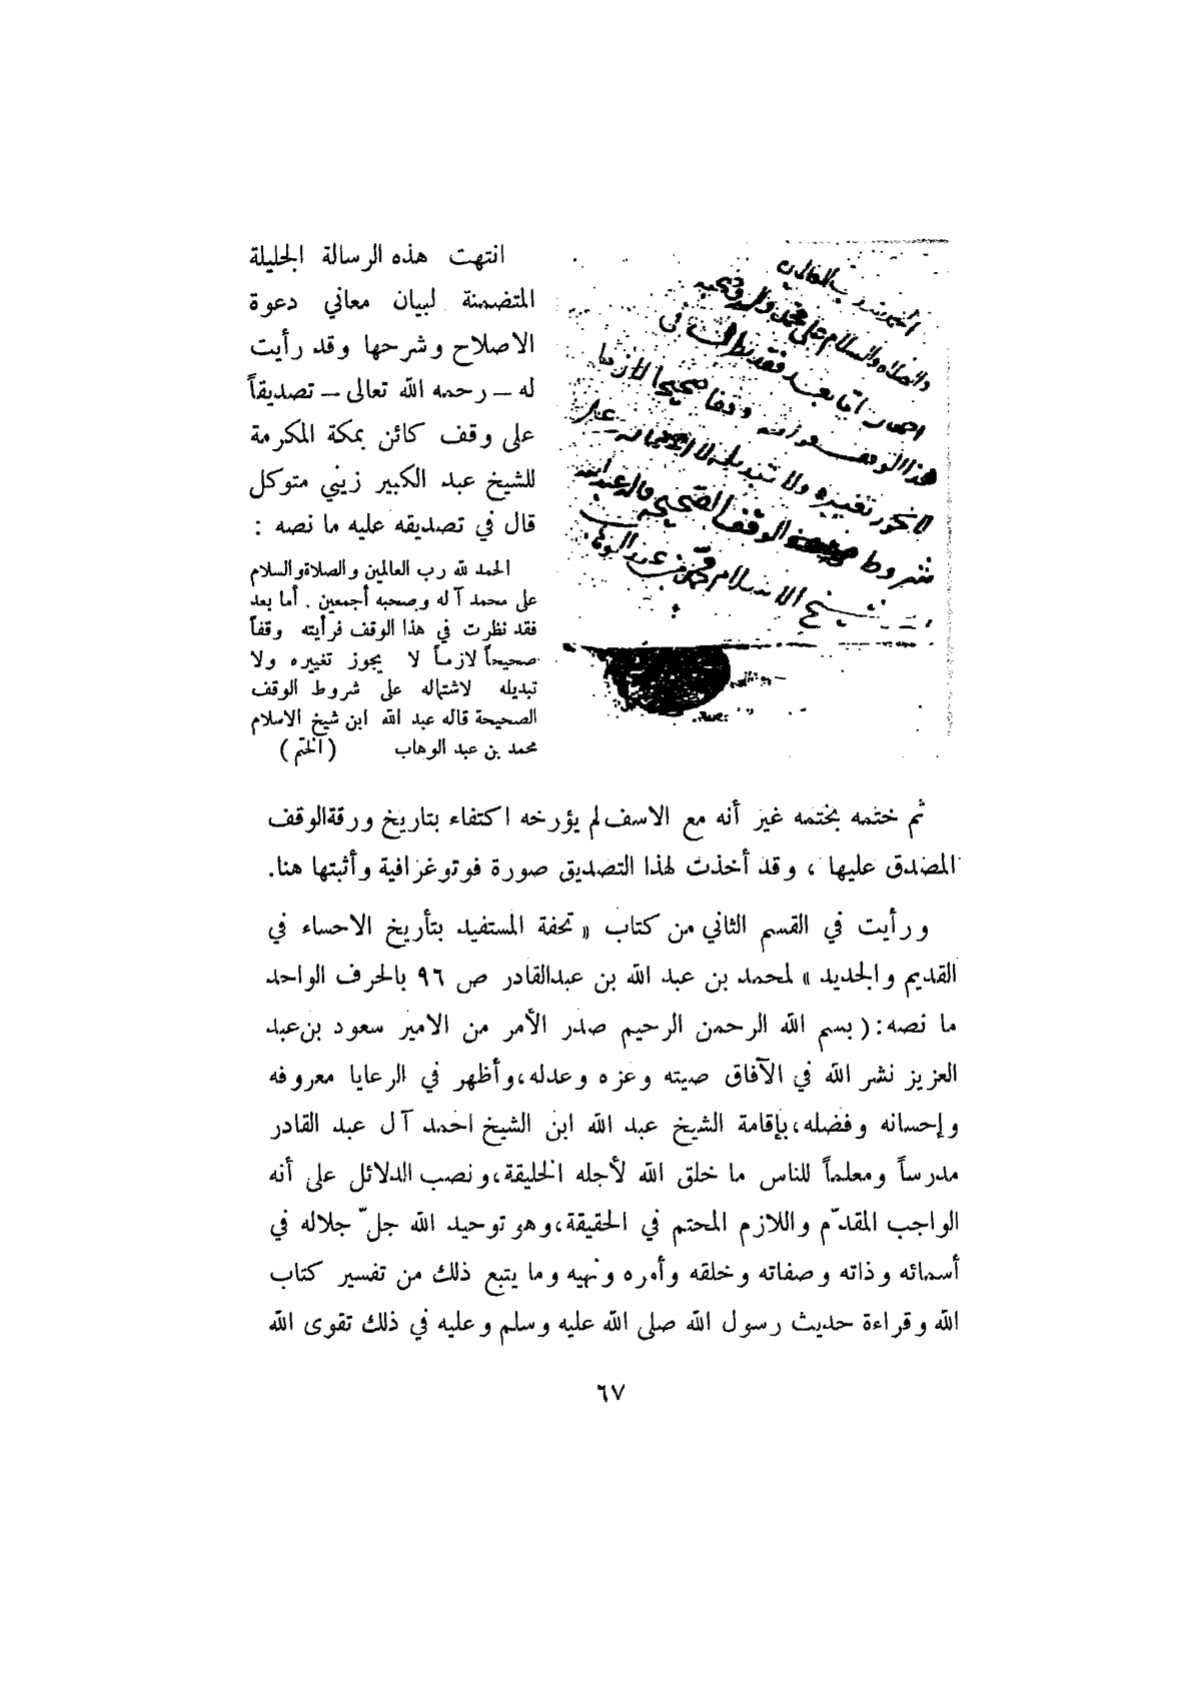 انتهت هذه الرسالة الجليلة
المتضمنة لبيان معاني دعوة
الاصلاح وشرحها وقد رأيت
له ــ رحمه الله تعالى ــ تصديقاً
على وقف كائن بمكة المكرمة
للشيخ عبد الكبير زيني متوكل
قال في تصديقه عليه ما نصه :
الحمد لله رب العالمين والصلاة والسلام
على محمد آله وصحبه أجمعين . أما بعد
فقد نظرت في هذا الوقف فرأيته وقفاً
صحيحاً لازماً لا يجوز تغييره ولا
تبديله لاشتماله على شروط الوقف
الصحيحة قاله عبد الله ابن شيخ الاسلام
محمد بن عبد الوهاب (الختم)
رب العالمين
والصلاة والسلام على محمد وآله وصحبه
اما بعد فقد نظرت في
هذا الوقف وقفا صحيحا لازما
لا يجوز تغييره ولا تبديله لاشتماله على
شروط الوقف الصحيحه قاله عبد الله
شيخ الاسلام محمد بن عبد الوهاب
ثم ختمه بختمه غير أنه مع الاسف لم يؤرخه اكتفاء بتاريخ ورقة الوقف
المصدق عليها ، وقد أخذت لهذا التصديق صورة فوتوغرافية وأثبتها هنا.
ورأيت في القسم الثاني من كتاب « تحفة المستفيد بتأريخ الاحساء في
القديم والجديد » لمحمد بن عبد الله بن عبدالقادر ص ٩٦ بالحرف الواحد
ما نصه : ( بسم الله الرحمن الرحيم صدر الأمر من الامير سعود بن عبد
العزيز نشر الله في الآفاق صيته وعزه وعدله،وأظهر في الرعايا معروفه
وإحسانه وفضله،بإقامة الشيخ عبد الله ابن الشيخ احمد آل عبد القادر
مدرساً ومعلماً للناس ما خلق الله لأجله الخليقة،ونصب الدلائل على أنه
الواجب المقدّم واللازم المحتم في الحقيقة،وهو توحيد الله جلّ جلاله في
أسمائه وذاته وصفاته وخلقه وأمره ونهيه وما يتبع ذلك من تفسير كتاب
الله وقراءة حديث رسول الله صلى الله عليه وسلم وعليه في ذلك تقوى الله
٦٧